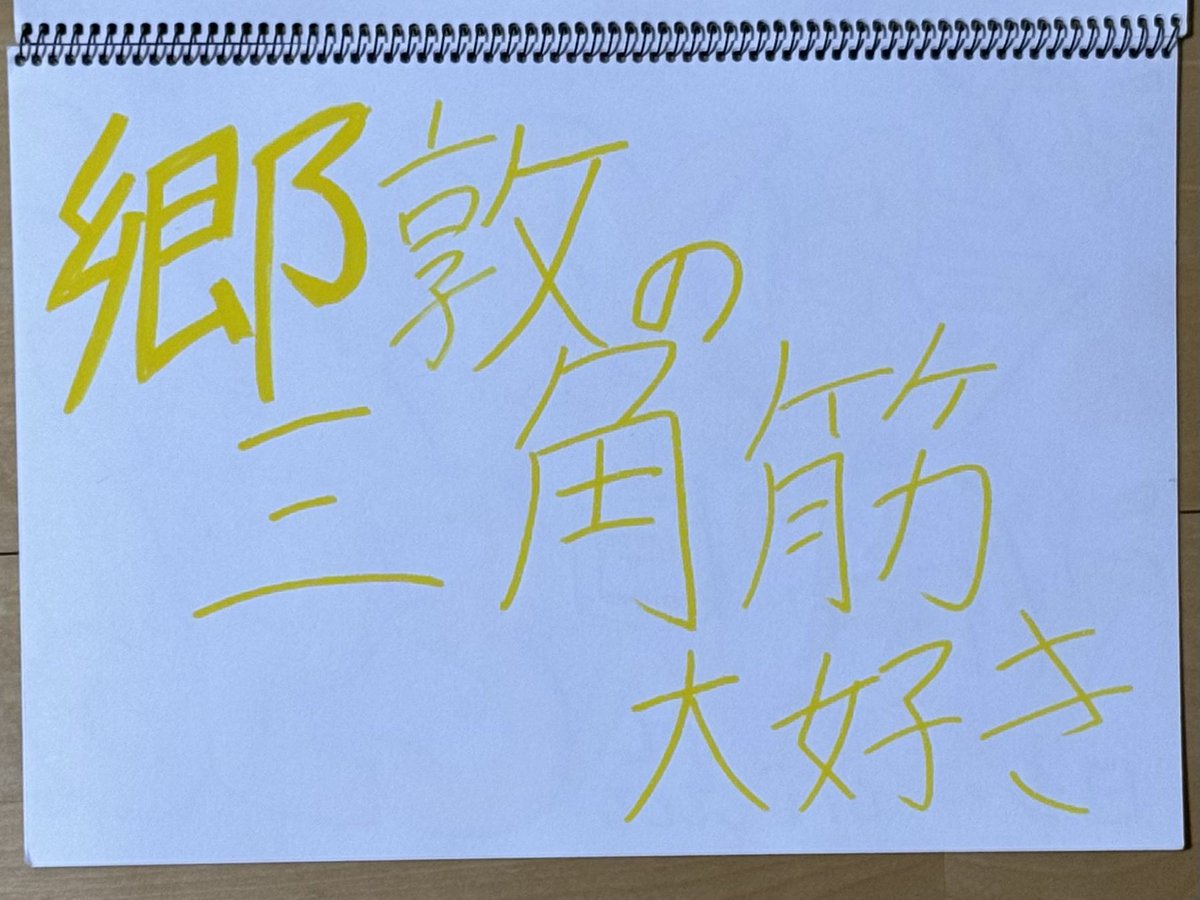 郷敦の
三角筋
大好き